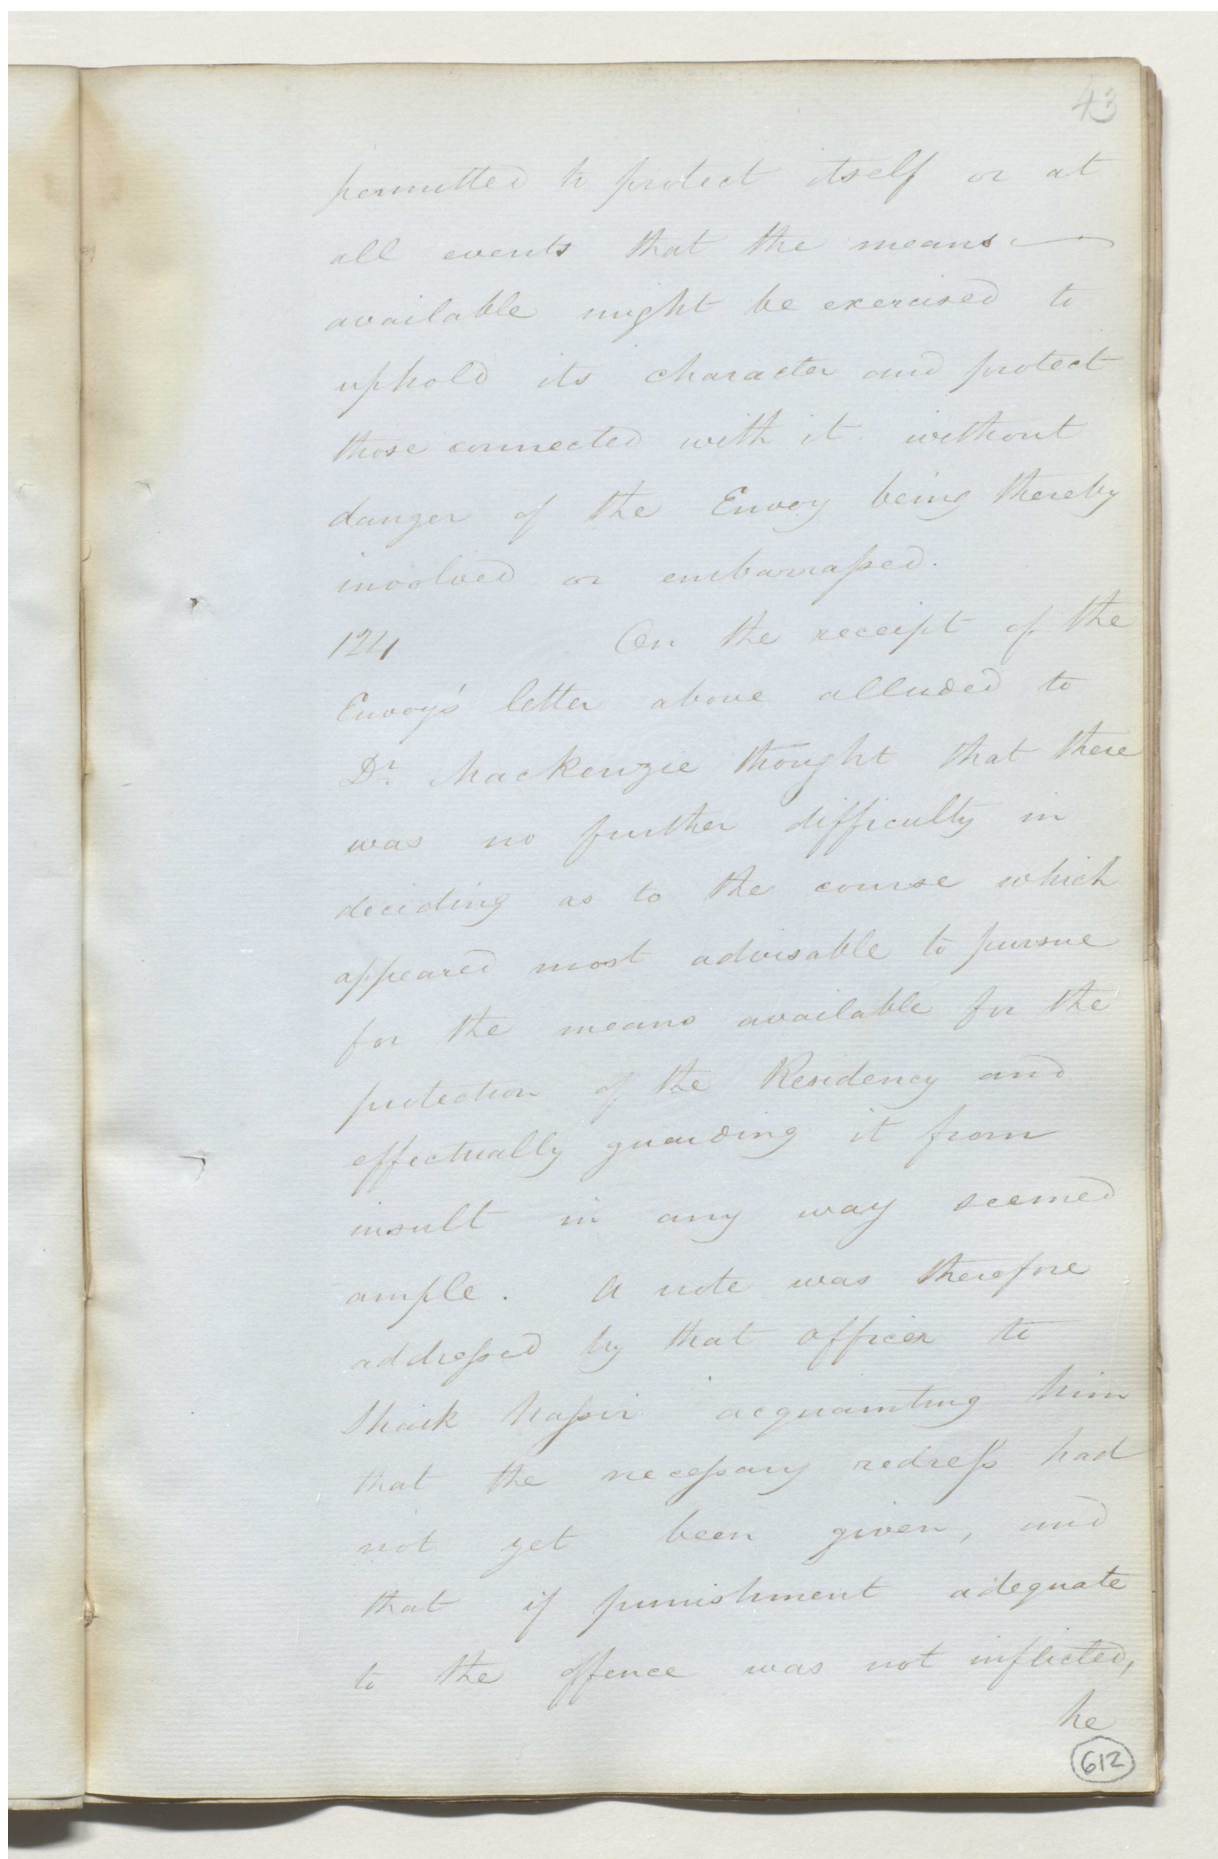 43
permitted to protect itself or at
all events that the means
available might be exercised to
uphold its character and protect
those connected with it without
danger of the Envoy being thereby
involved or embarraſsed.
124 On the receipt of the
Envoy's letter above alluded to
Dr. Mackenzie thought that there
was no further difficulty in
deciding as to the course which
appeared most advisable to pursue
for the means available for the
protection of the Residency and
effectually guarding it from
insult in any way seemed
ample. A note was therefore
addreſsed by that officer to
Shaik Naſsir acquainting him
that the neceſsary redreſs had
not yet been given, and
that if punishment adequate
to the offence was not inflicted,
he
612